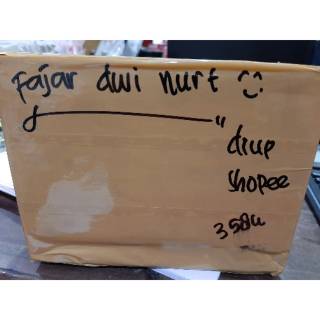 Fajar dwi nurf
drup
shopee